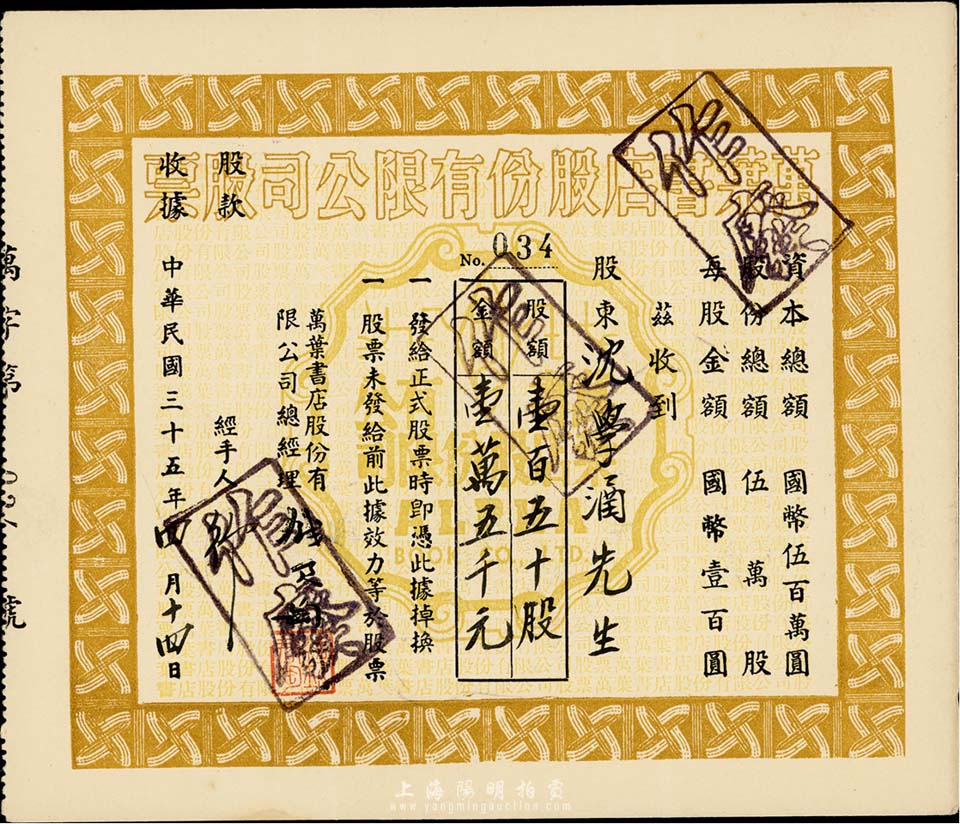 萬葉書店股份有限公司股票
資本總額 國幣伍百萬圓
股份總額 伍萬股
每股金額 國幣壹百圓
茲收到
股東 沈學涌 先生
No. 034
股額 壹百五十股
金額 壹萬五千元
一 發給正式股票時即憑此據掉換
一 股票未發給前此據效力等於股票
萬葉書店股份有
限公司 總經理
經手人
中華民國三十五年四月十四日
股款
收據
作廢
作廢
作廢
BOOK CO., LTD.
萬字第
號
上海陽明拍賣
www.yangmingauction.com